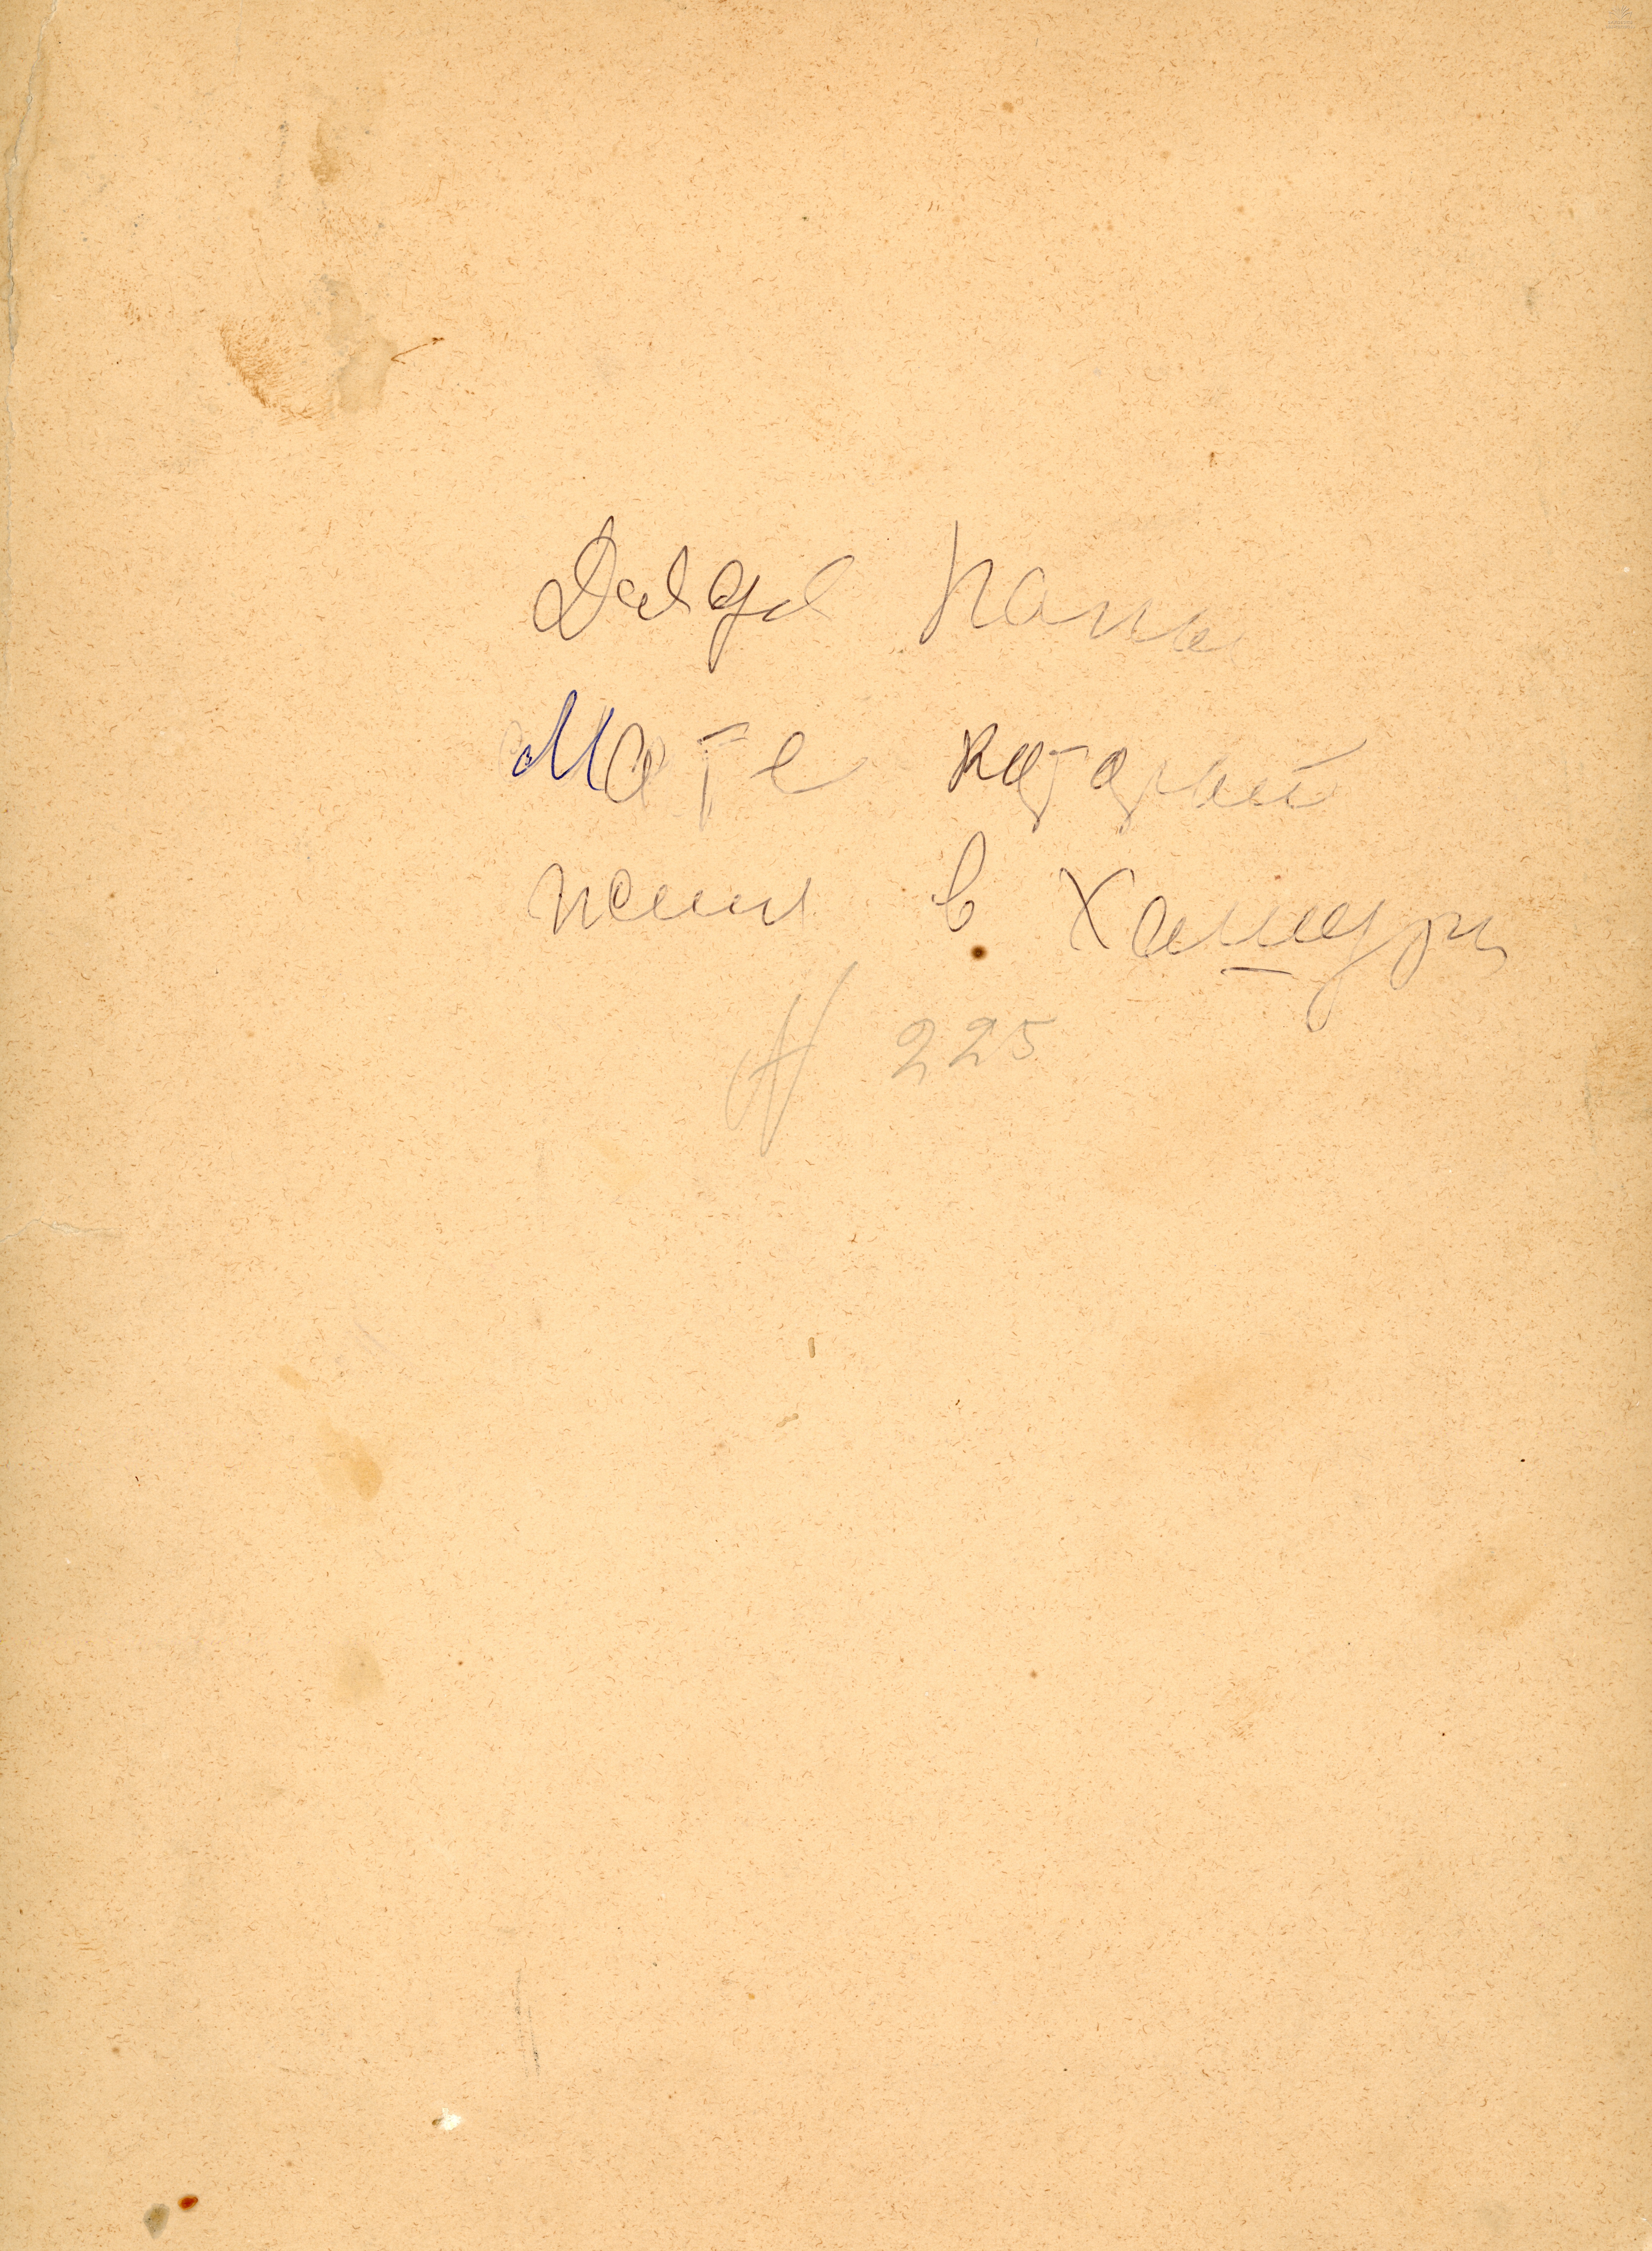 Дядя Папы
Моте каторый
жил в Хашури
N 225